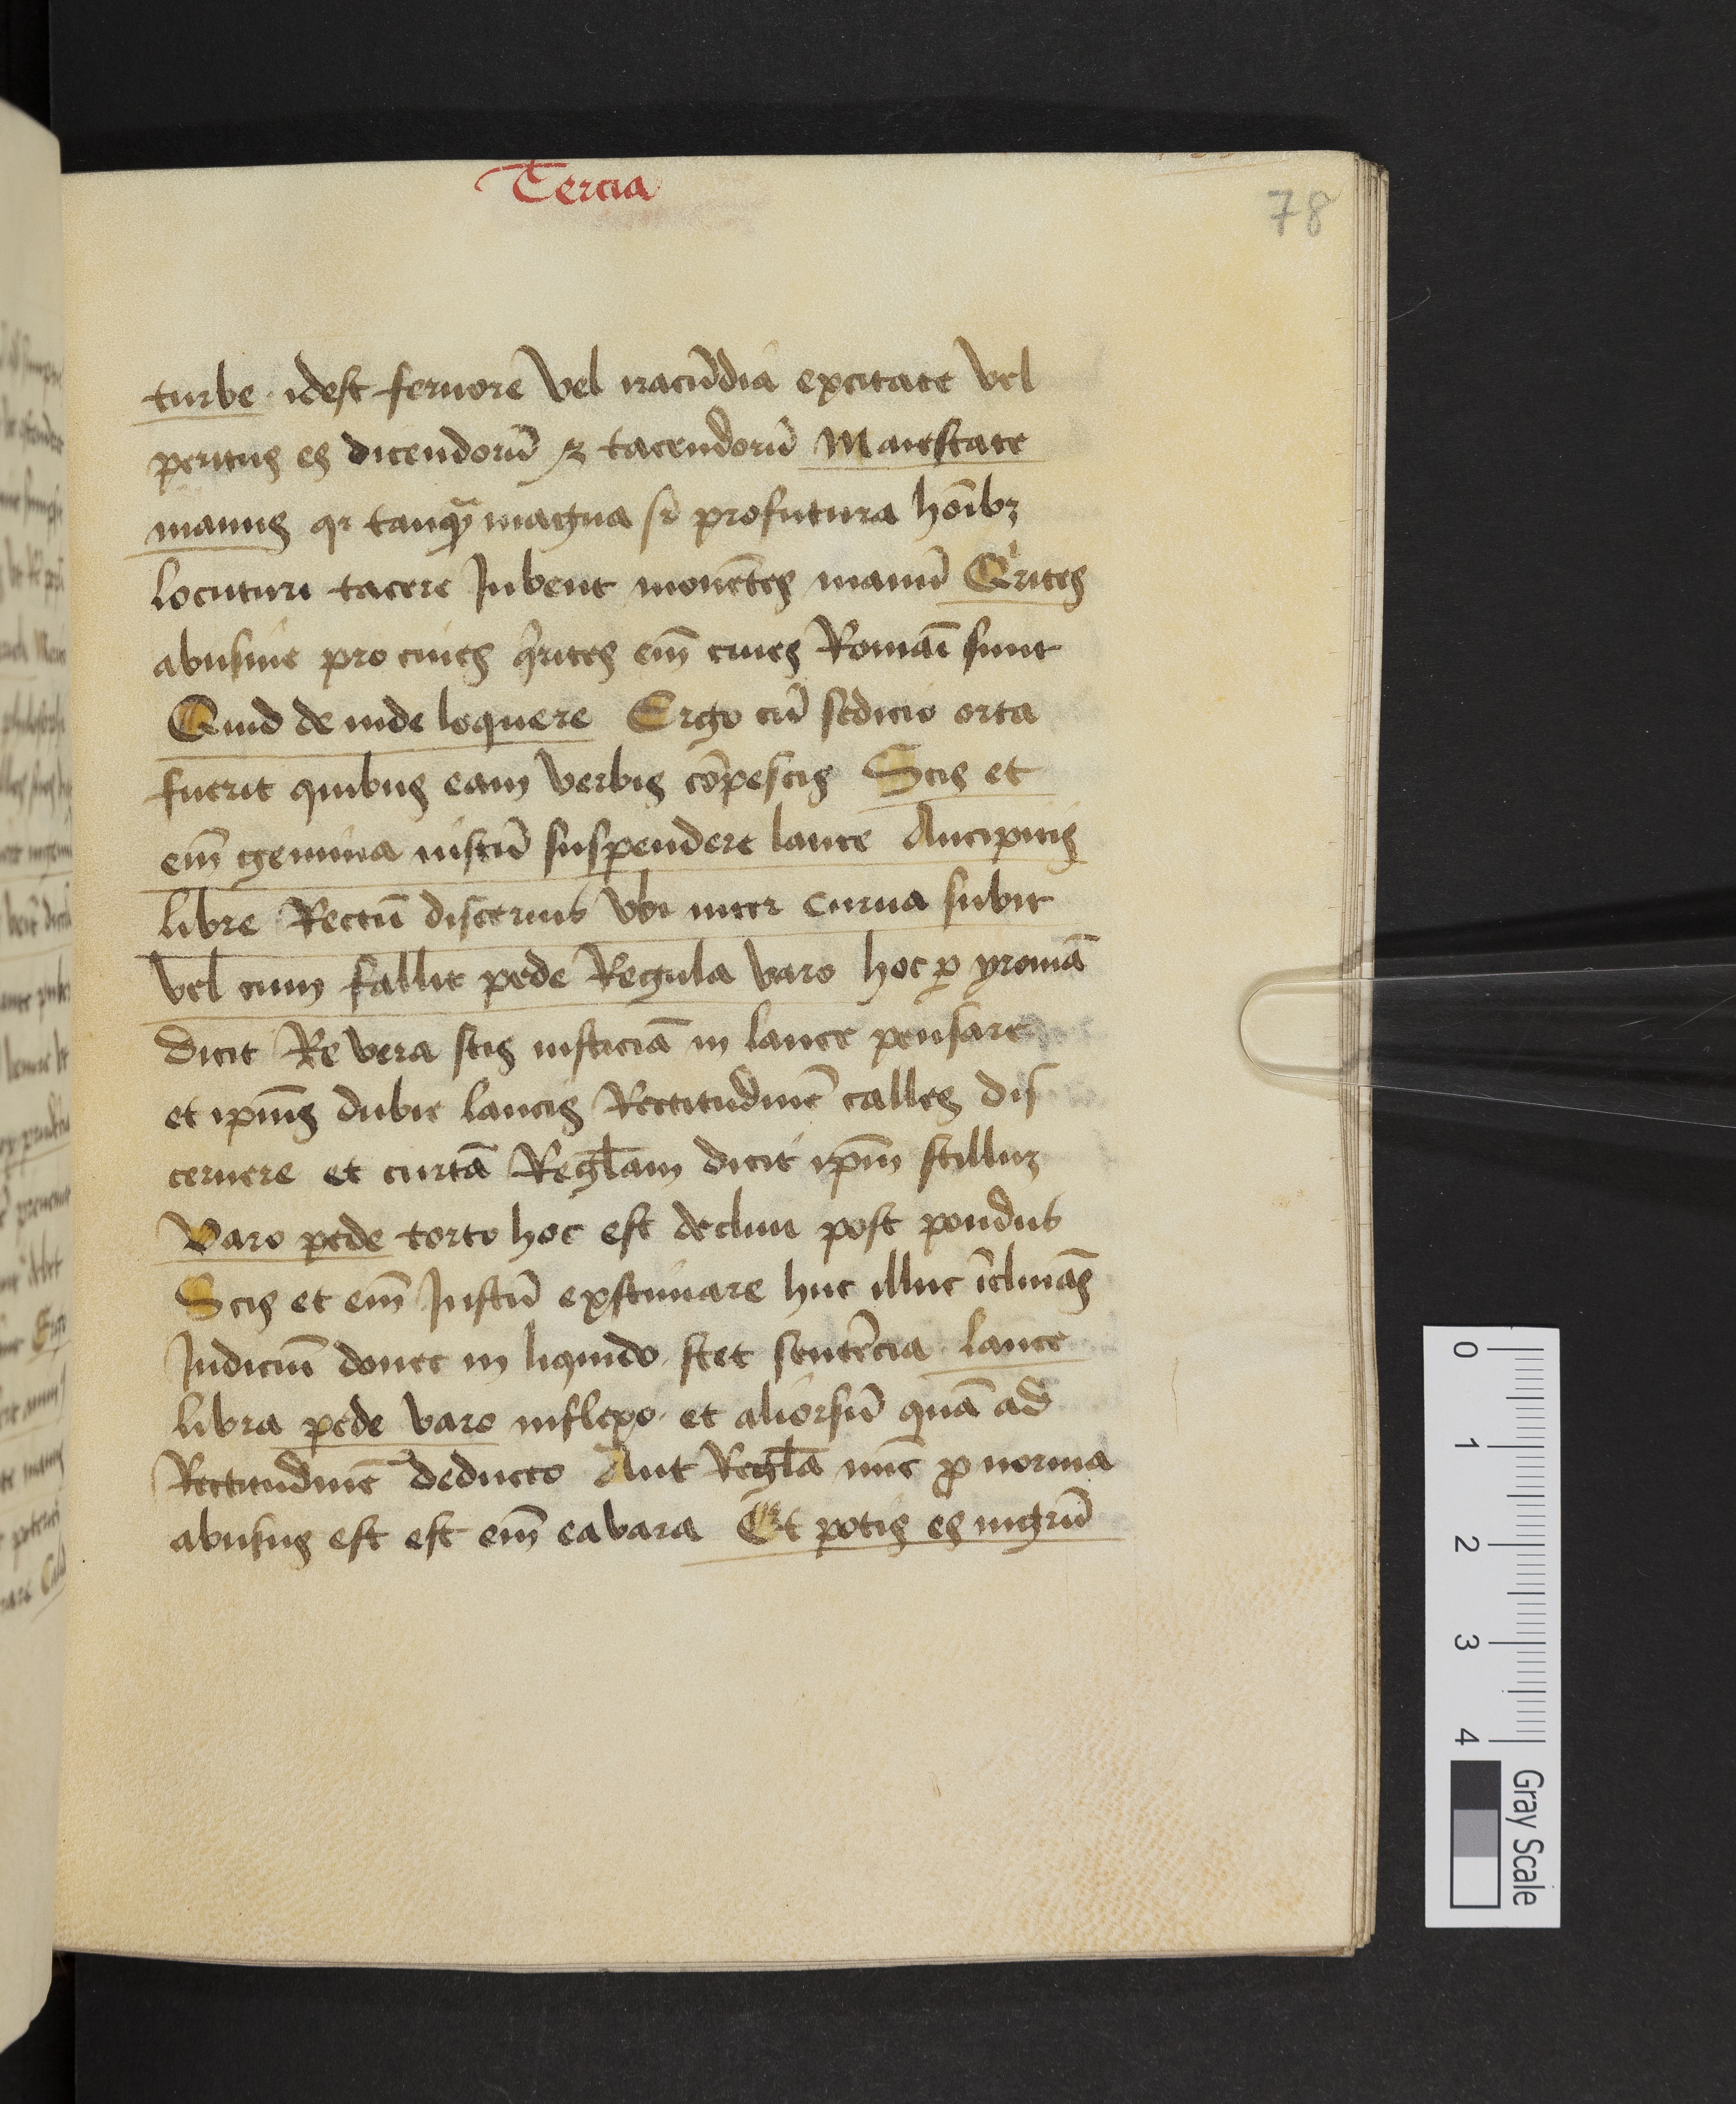 Tercia
78
turbe · idest feruorē vel iracūdia excitate vel
peritus es dicendorū ⁊ tacendorū Maiestate
manus qr tanqͣ magna sr̄ profutura hoībꝫ
locuturi tacere Jubent mouētes manū Qͥrites
abusiue pro ciues qͥrites em̄ ciues Romāi sunt
Quid de inde loquere Ergo cū sedicio orta
fuerit quibus eam verbis cōpescis Scis et
em̄ gemina iustū suspendere lance Ancipitis
libre Rectū discernis vbi inter curua subit
vel cum fallit pede Regula varo hoc ꝑ yroniā
dicit Re vera scis iusticiā in lance pensare
et ipīus dubie lancis Rectitudinē calles dis
cernere et curtā Regl̄am dicit ip̄m stilluꝫ
Varo pede torto hoc est decliui post pondus
Scis et em̄ Justū existimare huc illuc īclinās
Judiciū donec in liquido stet sentēcia lance
libra pede varo inflexo · et aliorsū quā ad
Rectitudinē deducto Aut Regl̄a nūc ꝓ norma
abusus est est em̄ ea vara Et potis es nigrū
0
1
2
3
4
Gray Scale